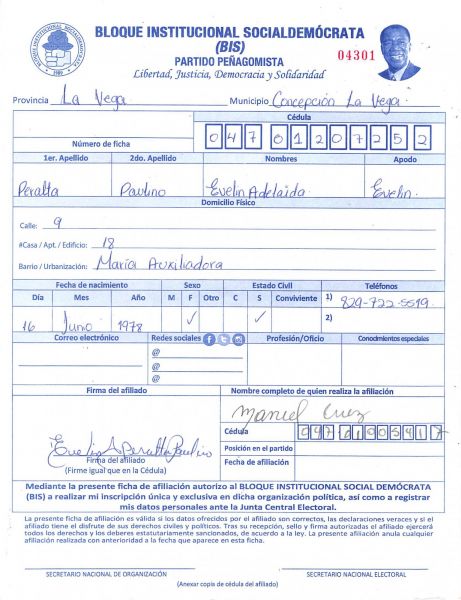 BLOQUE INSTITUCIONAL SOCIALDEMÓCRATA
(BIS)
PARTIDO PEÑAGOMISTA
Libertad, Justicia, Democracia y Solidaridad
04301
Provincia La Vega Municipio Concepción La Vega.
Cédula
Número de ficha 04701207252
1er. Apellido 2do. Apellido Nombres Apodo
Peralta Paulino Evelin Adelaida. Evelin.
Domicilio Físico
Calle: 9
#Casa / Apt. / Edificio: 18
Barrio / Urbanización: María Auxiliadora
Fecha de nacimiento Sexo Estado Civil Teléfonos
Día Mes Año M F Otro C S Conviviente 1) 829-722-5519.
16 Junio 1978 ✓ ✓ 2)
Correo electrónico Redes sociales Profesión/Oficio Conocimientos especiales
@
@
@
Firma del afiliado Nombre completo de quien realiza la afiliación
Manuel Cruz
Cédula
Evelin A Peralta Paulino Posición en el partido
Firma del afiliado Fecha de afiliación
(Firme igual que en la Cédula)
Mediante la presente ficha de afiliación autorizo al BLOQUE INSTITUCIONAL SOCIAL DEMÓCRATA
(BIS) a realizar mi inscripción única y exclusiva en dicha organización política, así como a registrar
mis datos personales ante la Junta Central Electoral.
La presente ficha de afiliación es válida si los datos ofrecidos por el afiliado son correctos, las declaraciones veraces y si el
afiliado tiene el disfrute de sus derechos civiles y políticos. Tras su recepción, sello y firma autorizadas el afiliado ejercerá
todos los derechos y los deberes estatutariamente sancionados, de acuerdo a la ley. La presente afiliación anula cualquier
afiliación realizada con anterioridad a la fecha que aparece en esta ficha.
SECRETARIO NACIONAL DE ORGANIZACIÓN SECRETARIO NACIONAL ELECTORAL
(Anexar copia de cédula del afiliado)